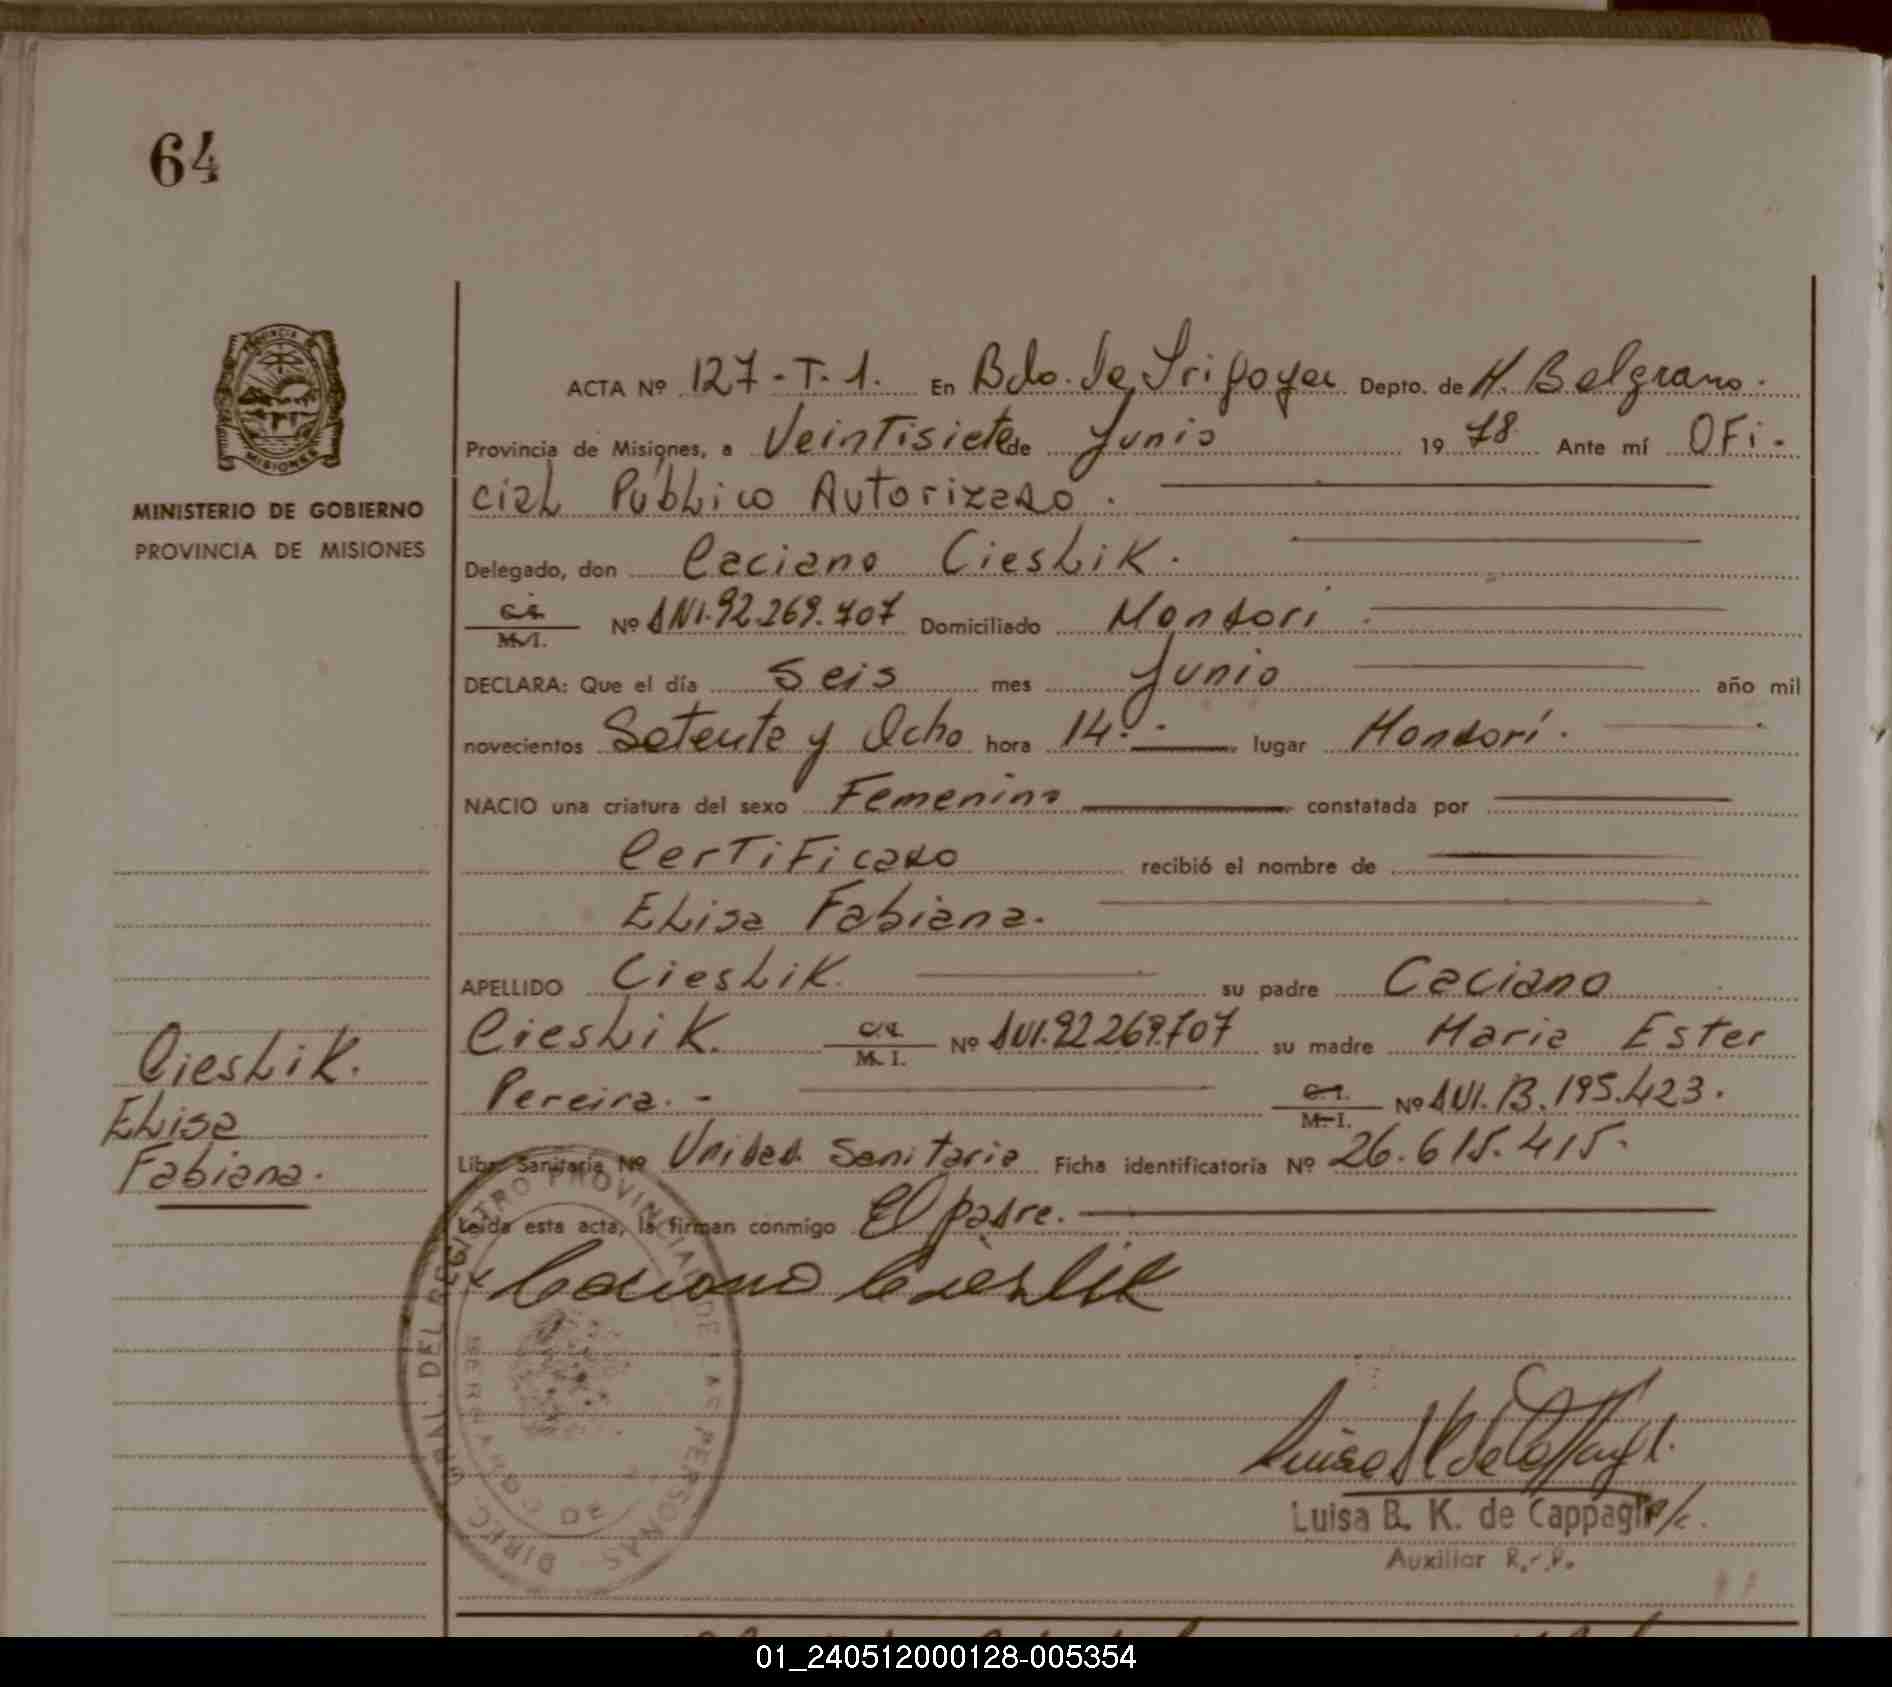 64
MINISTERIO DE GOBIERNO
PROVINCIA DE MISIONES
ACTA Nº 127-T-1. En Bdo. de Irigoyen Depto. de M. Belgrano.
Provincia de Misiones, a Veintisiete de Junio 1978 Ante mí OFi-
cial Público Autorizado.
Delegado, don Caciano Cieslik.
C.I.
M.I. Nº DNI. 92.269.707 Domiciliado Mondori
DECLARA: Que el día Seis mes Junio año mil
novecientos Setenta y Ocho hora 14.- lugar Mondorí.
NACIO una criatura del sexo Femenino constatada por
Certificado recibió el nombre de
Elisa Fabiana.
APELLIDO Cieslik. su padre Caciano
Cieslik. C.I.
M.I. Nº DNI. 92269.707 su madre Maria Ester
Pereira.- C.I.
M.I. Nº DNI. 13.195.423.
Libr. Sanitaria Nº Unidad Sanitaria Ficha identificatoria Nº 26.615.415.
Leída esta acta, la firman conmigo El padre.
x Caciano Cieslik
Cieslik.
Elisa
Fabiana.
DIREC. GRAL. DEL REGISTRO PROVINCIAL DE LAS PERSONAS
Luisa B. K. de Cappagli
Luisa B. K. de Cappagli
Auxiliar R. P.
01_240512000128-005354